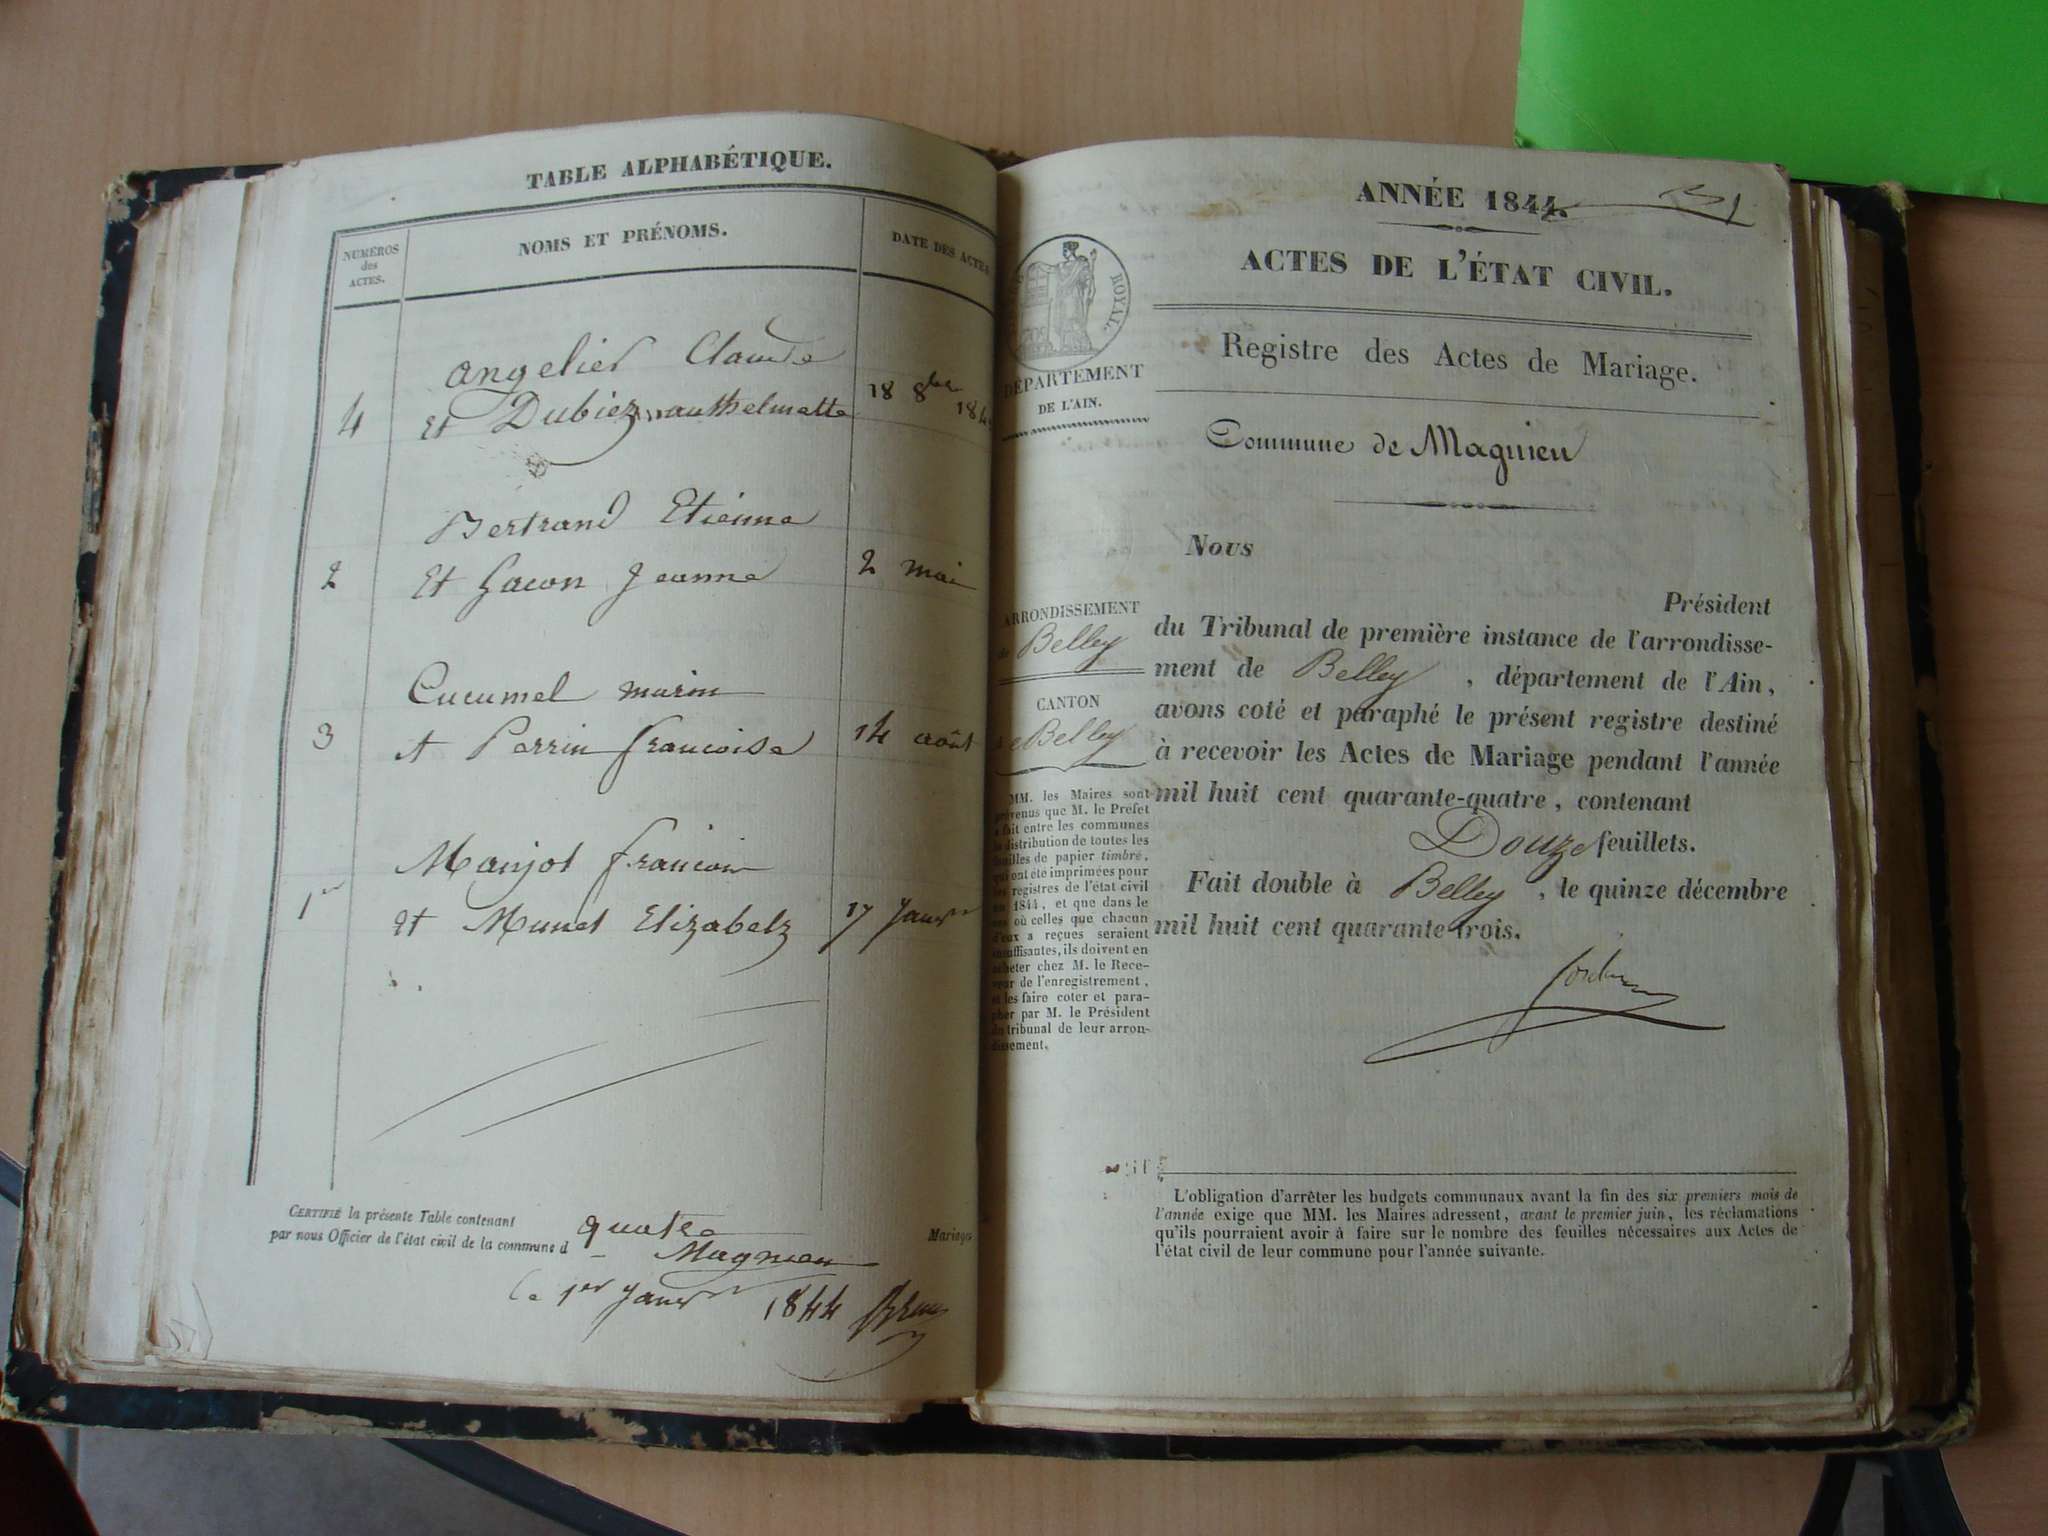 TABLE ALPHABÉTIQUE.
NUMÉROS
des
ACTES.
NOMS ET PRÉNOMS.
DATE DES ACTES
Angelier Claude
4 et Dubiez anthelmette 18 8bre 184
Bertrand Etienne
2 Et Gacon Jeanne 2 mai
Cucumel marin
3 et Perrin francoise 14 août
Manjot francois
1er et Munet Elizabetz 17 Janvr
CERTIFIÉ la présente Table contenant quatre Mariages
par nous Officier de l'état civil de la commune d Magnieu
Le 1er Janvr 1844
ANNÉE 1844.
ACTES DE L'ÉTAT CIVIL.
ROYAL.
DÉPARTEMENT
DE L'AIN.
Registre des Actes de Mariage.
Commune de Magnieu
ARRONDISSEMENT
de Belley
CANTON
de Belley
MM. les Maires sont
prévenus que M. le Préfet
a fait entre les communes
la distribution de toutes les
feuilles de papier timbré,
qui ont été imprimées pour
les registres de l'état civil
en 1844, et que dans le
cas où celles que chacun
d'eux a reçues seraient
insuffisantes, ils doivent en
acheter chez M. le Rece-
veur de l'enregistrement,
et les faire coter et para-
pher par M. le Président
du tribunal de leur arron-
dissement.
Nous
Président
du Tribunal de première instance de l'arrondisse-
ment de Belley, département de l'Ain,
avons coté et paraphé le présent registre destiné
à recevoir les Actes de Mariage pendant l'année
mil huit cent quarante-quatre, contenant
Douze feuillets.
Fait double à Belley, le quinze décembre
mil huit cent quarante-trois.
L'obligation d'arrêter les budgets communaux avant la fin des six premiers mois de
l'année exige que MM. les Maires adressent, avant le premier juin, les réclamations
qu'ils pourraient avoir à faire sur le nombre des feuilles nécessaires aux Actes de
l'état civil de leur commune pour l'année suivante.